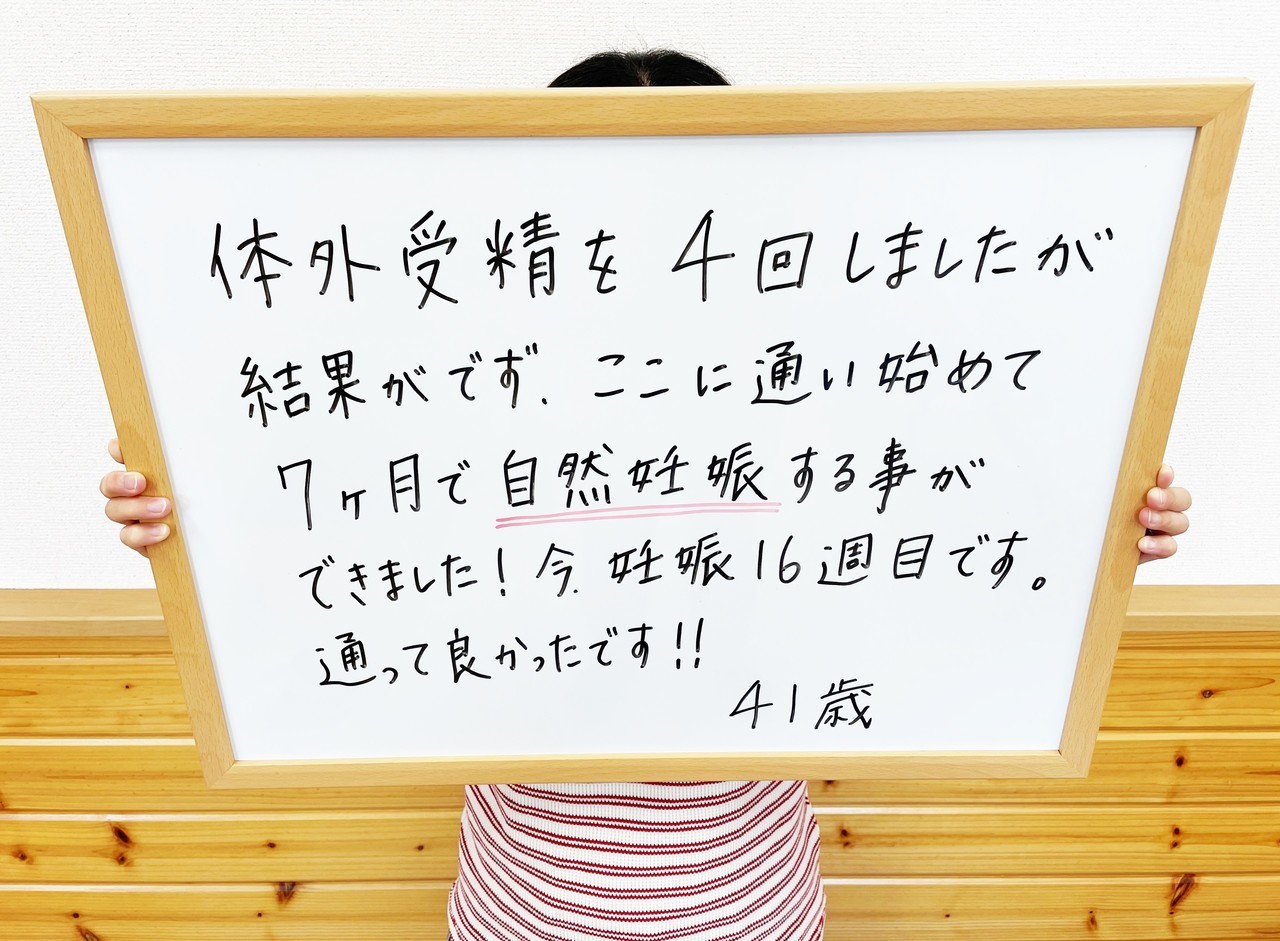 体外受精を4回しましたが
結果がでず、ここに通い始めて
7ヶ月で自然妊娠する事が
できました！今、妊娠16週目です。
通って良かったです!!
41歳